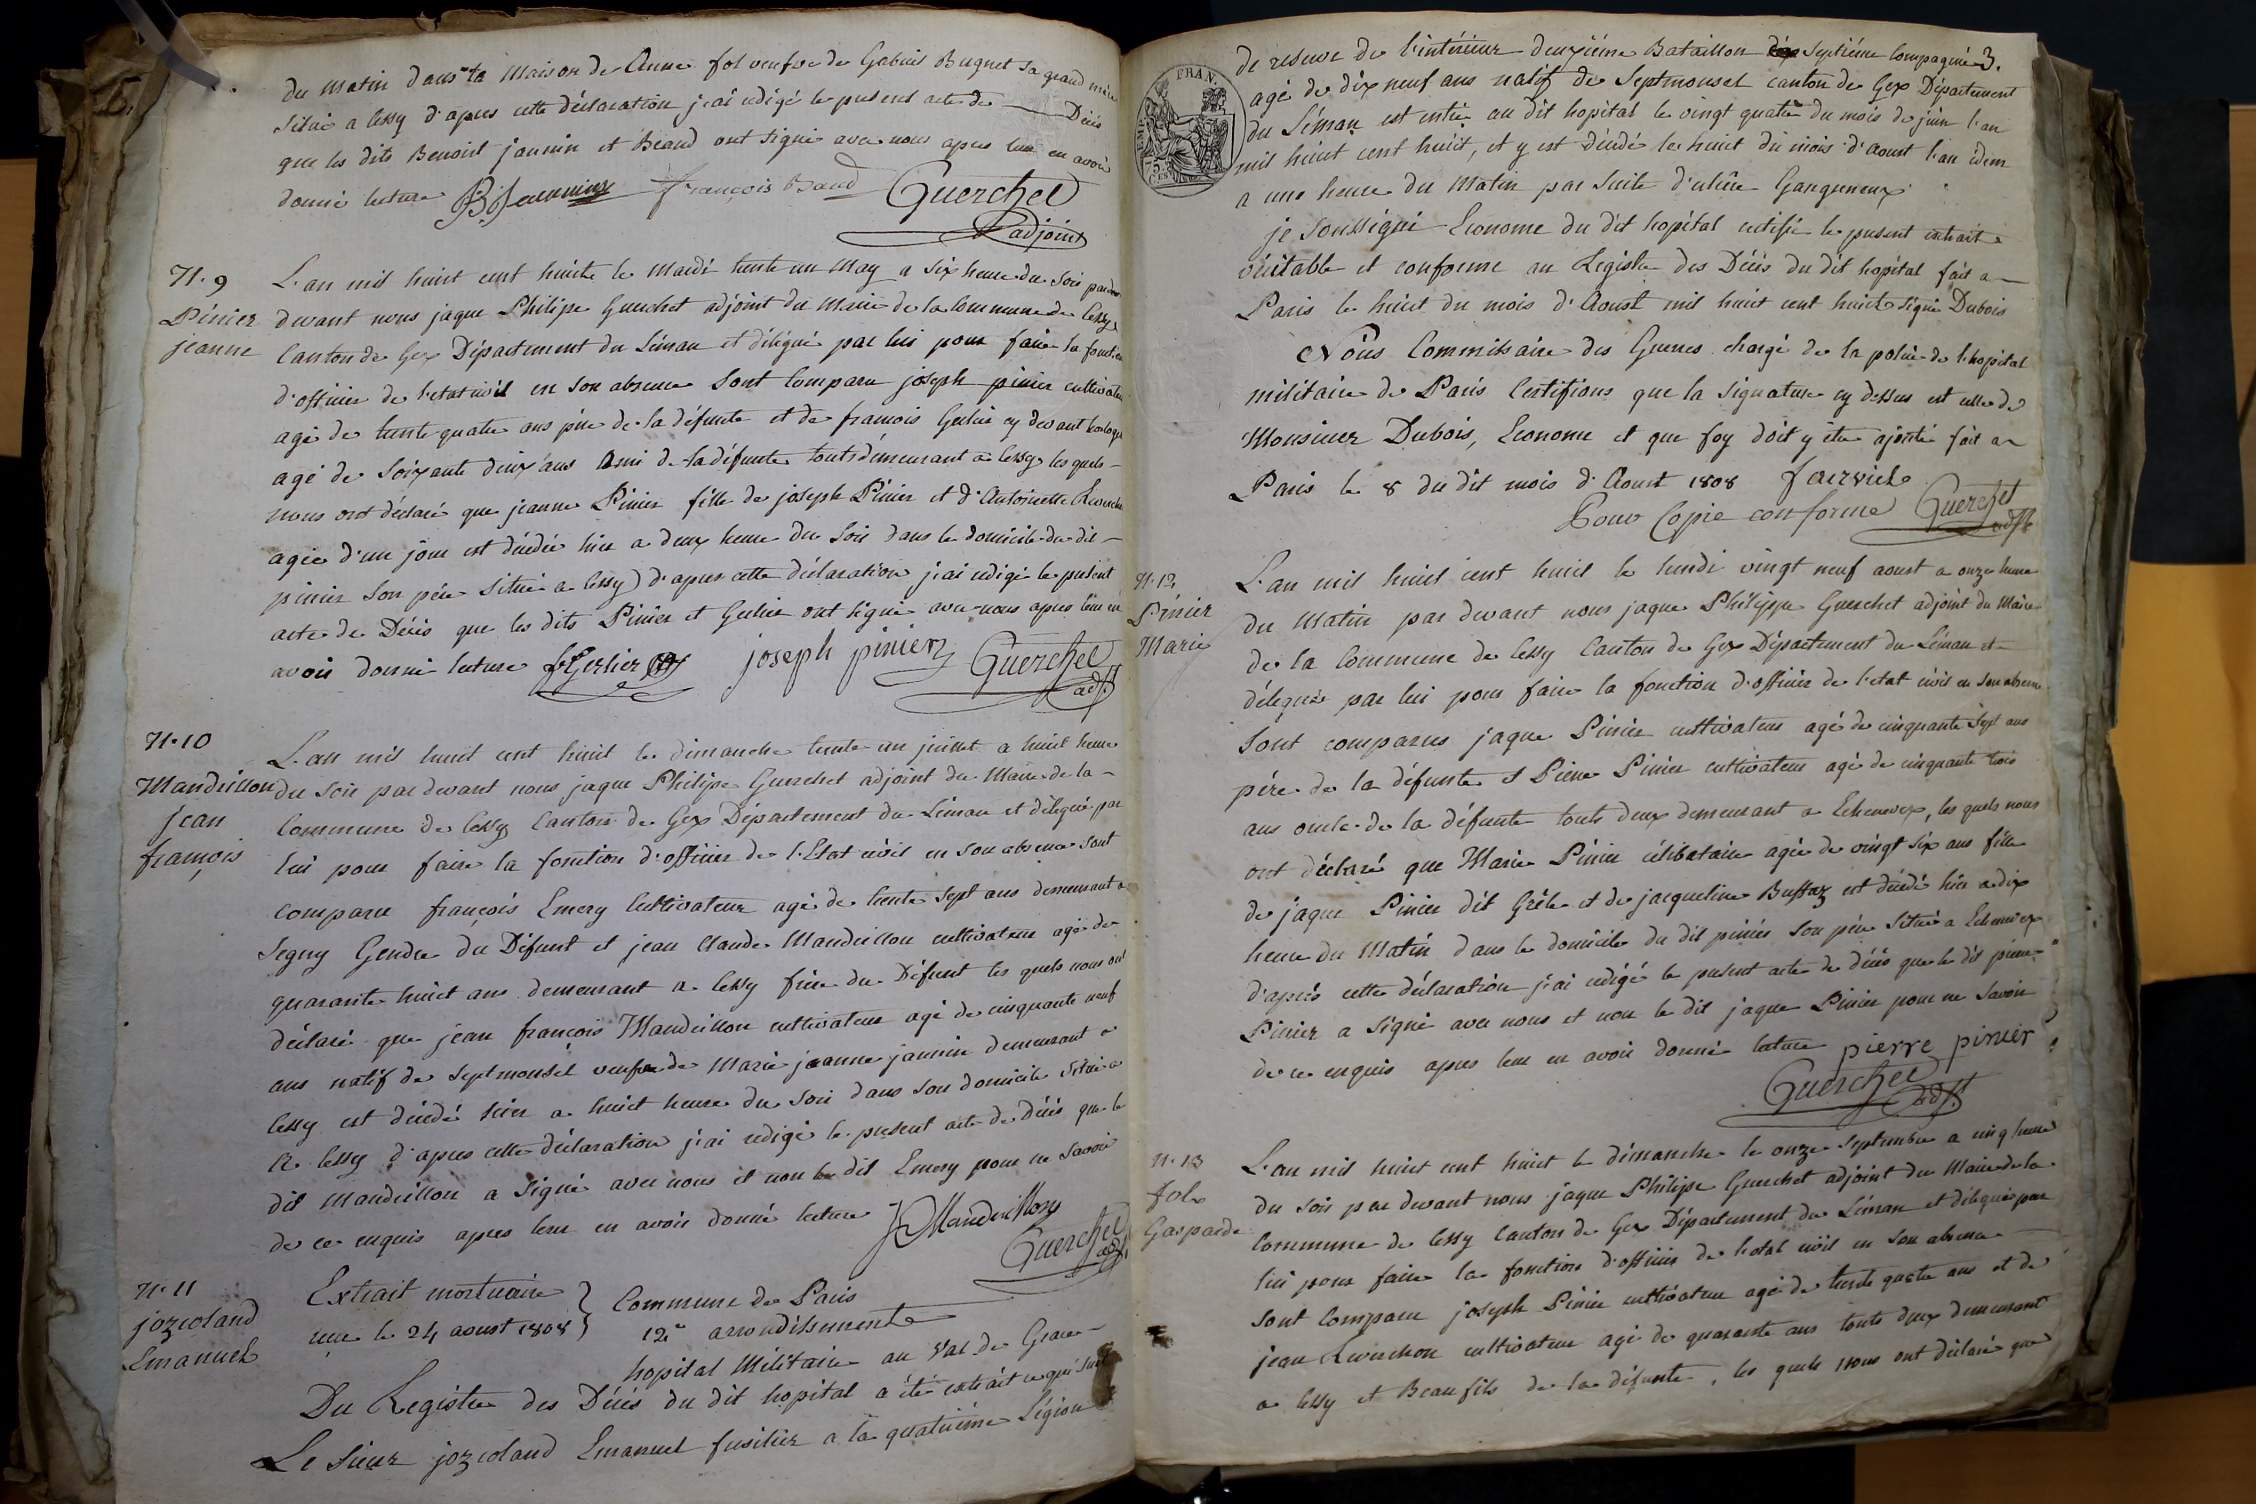 du matin dans la maison de Anne fol veufve de Gabriel Bugnet sa grand mère
située a Cessy d'apres cette déclaration j'ai rédigé le présent acte de Décès
que les dits Benoist jannin et Beaud ont signé avec nous apres leur en avoir
donné lecture B Jeannin François Baud Guerchet
adjoint
N. 9
Pinier
jeanne
L'an mil huit cent huite le mardi trente un may a six heure du soir par
devant nous jaque Philipe Guerchet adjoint du maire de la Commune de Cessy
Canton de Gex Département du Léman et délégué par lui pour faire la fonction
d'officier de l'etat civil en son absence Sont Comparu joseph pinier cultivateur
agé de trente quatre ans père de la défunte et de francois Gerlier cy devant horloger
agé de soixante deux ans Ami de la défunte touts demeurant a Cessy les quels
nous ont déclaré que jeanne Pinier fille de joseph Pinier et d'Antoinette
agée d'un jour est décédée hier a deux heure du soir dans le domicile du dit
pinier son père situé a Cessy d'apres cette déclaration j'ai rédigé le présent
acte de Décès que les dits Pinier et Gerlier ont signé avec nous apres leur en
avoir donné lecture f Gerlier joseph pinier Guerchet
adjt
N. 10
Mandrillon
jean
françois
L'an mil huit cent huit le dimanche trente un juillet a huit heure
du soir par devant nous jaque Philipe Guerchet adjoint du Maire de la
Commune de Cessy Canton de Gex Département du Léman et délégué par
lui pour faire la fonction d'officier de l'Etat civil en son absence sont
comparu françois Emery Cultivateur agé de trente sept ans demeurant a
Segny Gendre du Défunt et jean Claude Mandrillon cultivateur agé de
quarante huit ans demeurant a Cessy frère du Défunt les quels nous ont
déclaré que jean françois Mandrillon cultivateur agé de cinquante neuf
ans natif de Septmonsel veufve de Marie jeanne jannin demeurant a
Cessy est décédé hier a huit heure du soir dans son domicile situé a
Cessy d'apres cette déclaration j'ai rédigé le présent acte de Décès que le
dit Mandrillon a signé avec nous et non le dit Emery pour ne savoir
de ce enquis apres leur en avoir donné lecture J C Mandrillon
Guerchet
adjt
N. 11
jozcoland
Emanuel
Extrait mortuaire
reçu le 24 aoust 1808
Commune de Paris
12e arrondissement
hopital Militaire au Val de Grace
Du Registre des Décès du dit hopital a été extrait ce qui suit
Le Sieur jozcoland Emanuel fusilier a la quatrième Légion
3.
FRAN.
de reserve de l'intérieur deuxième Bataillon Septième Compagnie
agé de dix neuf ans natif de Septmonsel canton de Gex Département
du Léman est entré au dit hopital le vingt quatre du mois de juin l'an
mil huit cent huit, et y est décédé le huit du mois d'aoust l'an idem
a une heure du Matin par suite d'ulcère Gangreneux
je soussigné Econome du dit hopital certifie le présent extrait
véritable et conforme au Registre des Décès du dit hopital fait a
Paris le huit du mois d'Aoust mil huit cent huit signé Dubois
Nous Commissaire des Guerres chargé de la police de l'hopital
militaire de Paris Certifions que la signature cy dessus est celle de
Monsieur Dubois, Econome et que foy doit y être ajouté fait a
Paris le 8 du dit mois d'Aoust 1808
Pour Copie conforme Guerchet
adjt
N. 12
Pinier
Marie
L'an mil huit cent huit le lundi vingt neuf aoust a onze heure
du Matin par devant nous jaque Philippe Guerchet adjoint du Maire
de la Commune de Cessy Canton de Gex Département du Léman et
délegué par lui pour faire la fonction d'officier de l'etat civil en son absence
Sont comparus jaque Pinier cultivateur agé de cinquante sept ans
père de la défunte et Pierre Pinier cultivateur agé de cinquante trois
ans oncle de la défunte touts deux demeurant a Echenevex, les quels nous
ont déclaré que Marie Pinier célibataire agée de vingt six ans fille
de jaque Pinier dit Grêle et de jacqueline Buffaz est décédé hier a dix
heure du Matin dans le domicile du dit pinier son père situé a Echenevex
d'après cette déclaration j'ai rédigé le présent acte de décès que le dit pierre
Pinier a signé avec nous et non le dit jaque Pinier pour ne savoir
de ce enquis apres leur en avoir donné lecture pierre pinier
Guerchet
adjt
N. 13
fol
Gasparde
L'an mil huit cent huit le dimanche le onze septembre a cinq heure
du soir par devant nous jaque Philipe Guerchet adjoint du Maire de la
Commune de Cessy Canton de Gex Département du Léman et délegué par
lui pour faire la fonction d'officier de l'etat civil en son absence
Sont Comparu joseph Pinier cultivateur agé de trente quatre ans et de
jean Levrechon cultivateur agé de quarante ans touts deux demeurant
a Cessy et Beaufils de la défunte, les quels nous ont déclaré que